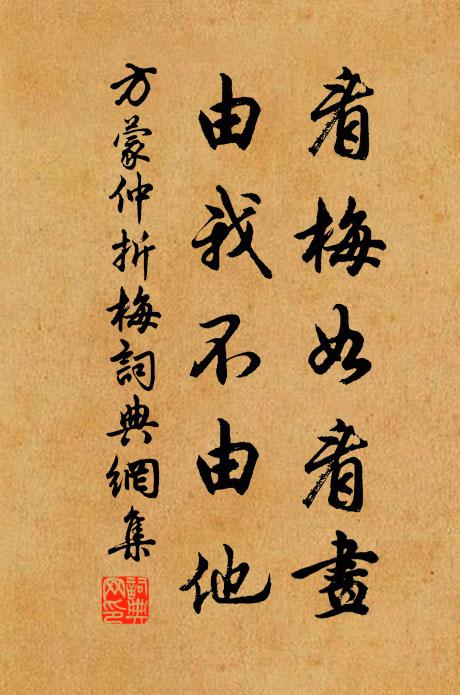 看梅如看畫
由我不由他
方蒙仲折梅詞典網集
詞典網印